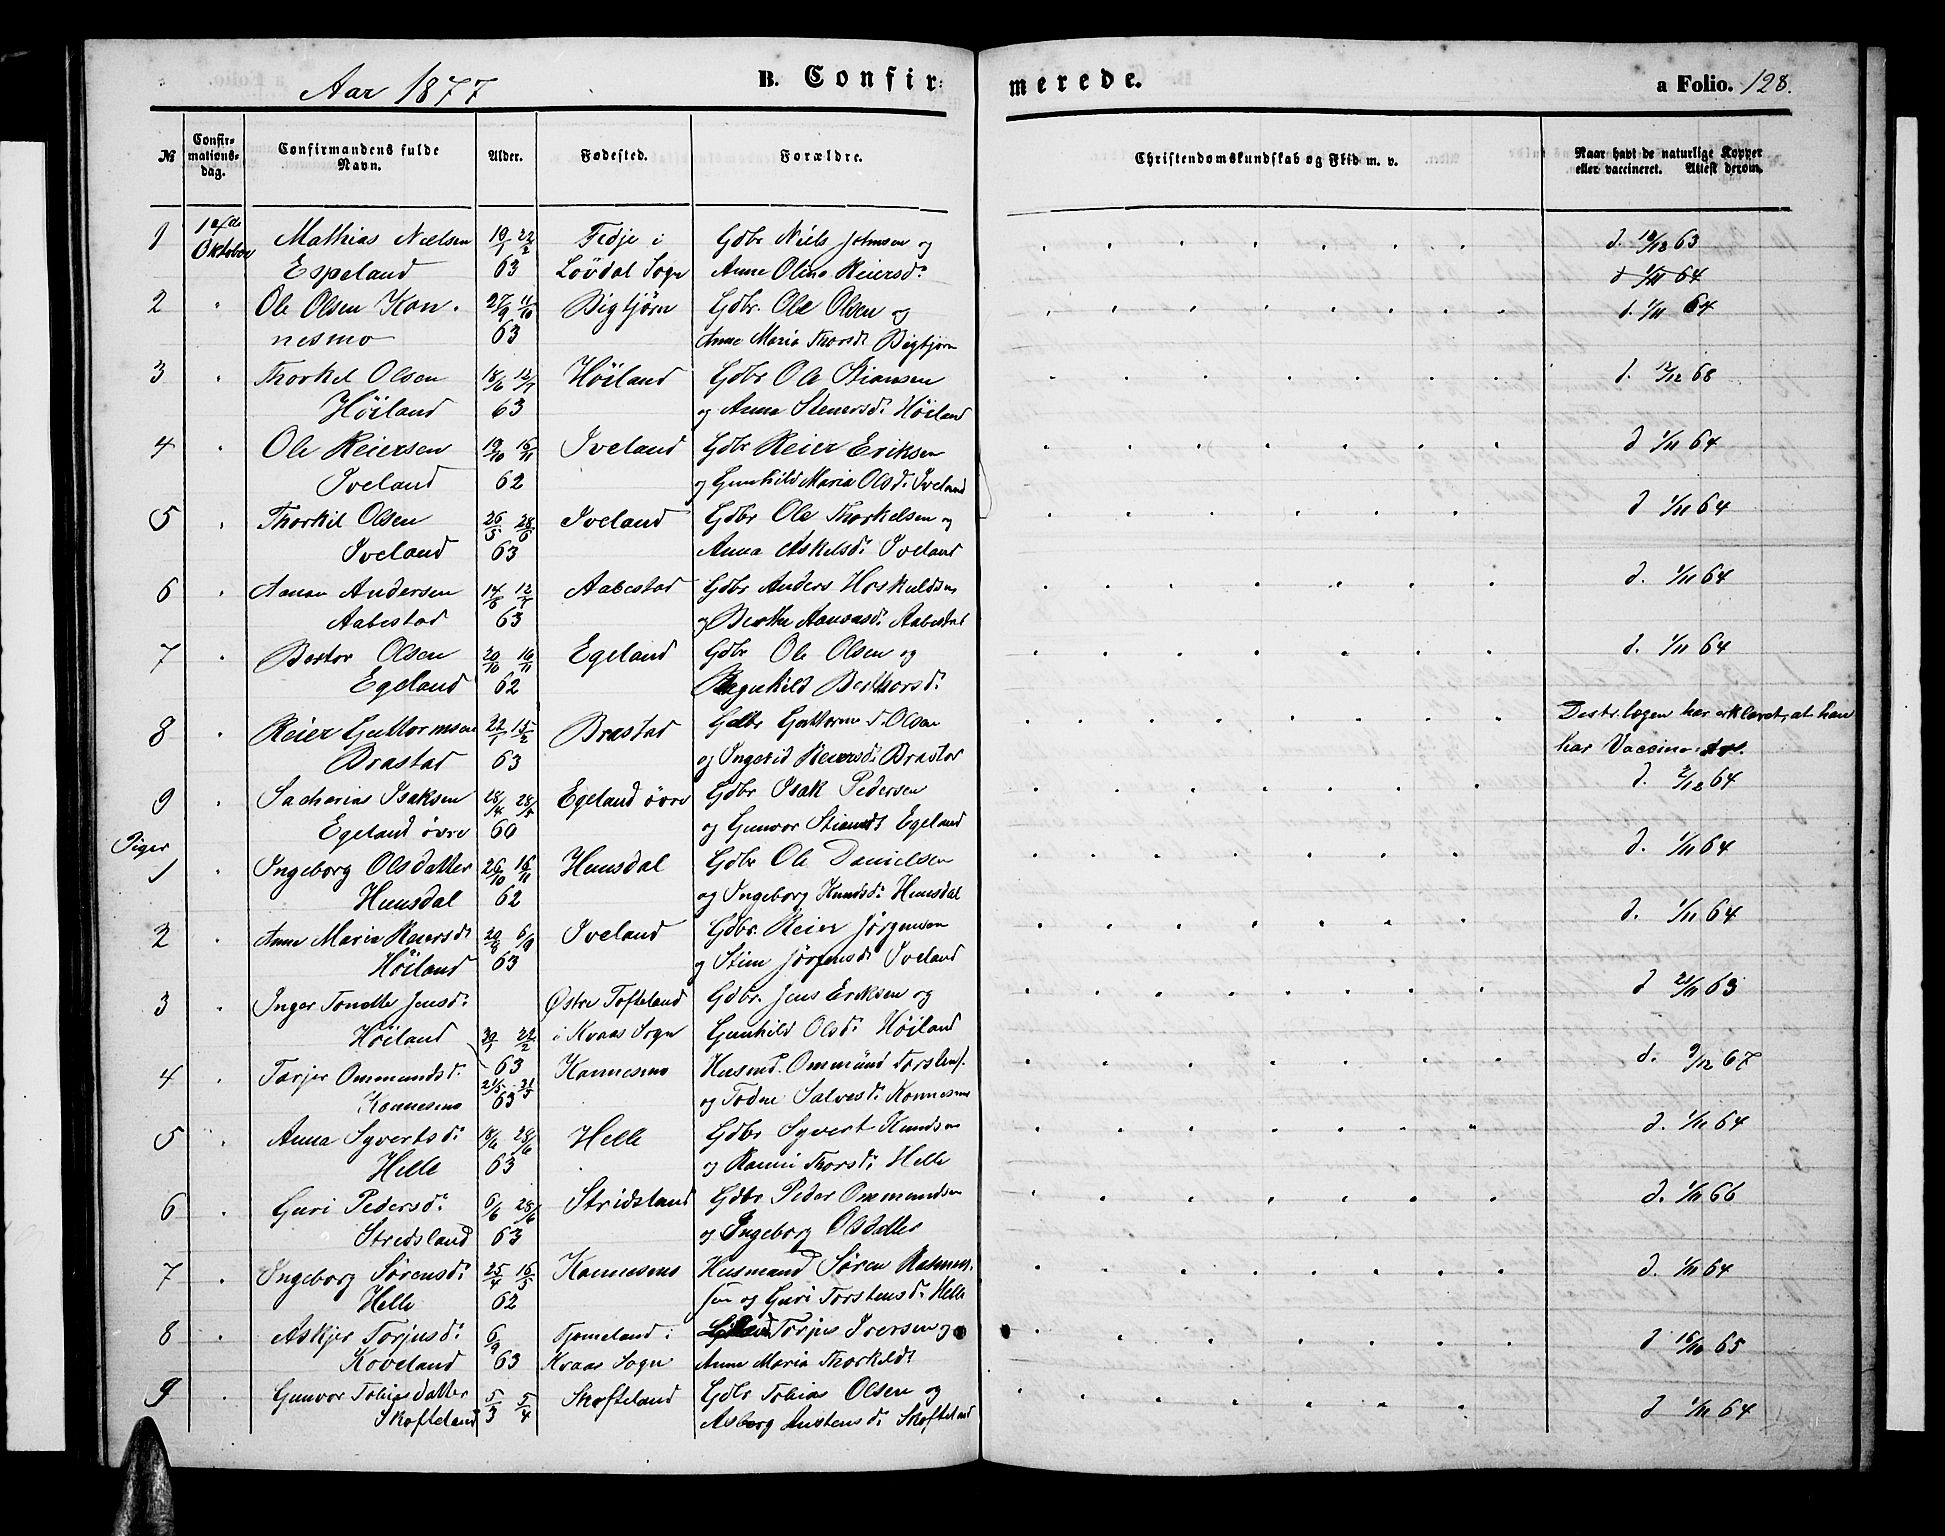 Aar 1877 B. Confirmerede. a Folio. 128.
№ Confirmationsdag. Confirmandens fulde Navn. Alder. Fødested. Forældre. Christendomskundskab og Flid m. v. Naar havt de naturlige Kopper eller vaccineret. Attest derom.
1 14de Oktober Mathias Nielsen 19/1 22/2 Fedje i Gdbr Niels Johnsen og d. 63
Espeland 63 Løvdal Sogn Anne Oline Reiersd: d 1/11 64
2 " Ole Olsen Kon- 27/9 11/10 Bigtjørn Gdbr. Ole Olsen og d. 1/11 64
nesmo 63 Anne Maria Thorsd: Bigtjørn
3 " Thorkel Olsen 18/6 12/7 Høiland Gdbr Ole Stiansen d. 68
Høiland 63 og Anna Stenersd: Høiland
4 " Ole Reiersen 19/10 16/11 Iveland Gdbr Reier Eriksen d 1/11 64
Iveland 62 og Gunhild Maria Olsd: Iveland
5 " Thorkil Olsen 26/5 28/6 Iveland Gdbr Ole Thorkelsen og d 1/11 64
Iveland 63 Anna Askelsd: Iveland
6 " Aanon Andersen 14/6 12/7 Aabestad Gdbr Anders Hoskuldsen d. 1/11 64
Aabestad 63 og Berthe Aanonsd: Aabestad
7 " Bertor Olsen 20/10 16/11 Egeland Gdbr Ole Olsen og d. 1/11 64
Egeland 62 Ragnhild Berthorsd:
8 " Reier Guttormsen 22/1 15/2 Brastad Gdbr Guttorm Olsen Distr.lægen har erklæret, at han
Brastad 63 og Ingerid Reiersd: Brastad har Vaccine
9 " Sacharias Isaksen 28/4 28/5 Egeland øvre Gdbr Isak Pedersen d. 64
Egeland øvre 60 og Gunvor Stiansd: Egeland
Piger
1 " Ingeborg Olsdatter 26/10 16/11 Hunsdal Gdbr Ole Danielsen d. 1/11 64
Hunsdal 62 og Ingeborg Knudsd: Hunsdal
2 " Anne Maria Reiersd: 20/8 6/9 Iveland Gdbr. Reier Jørgensen d. 1/11 64
Høiland 63 og Stine Jørgensd: Iveland
3 " Inger Tonette Jensd: Østre Tofteland Gdbr. Jens Eriksen og d 63
Høiland 20/1 22/2 i Kvaas Sogn Gunhild Olsd: Høiland
63
4 " Tarjer Ommundsd: 21/5 Konnesmo Husmd. Ommund Torstens. d. 9/12 67
Konnesmo 63 og Todne Salvesd: Konnesmo
5 " Anna Syvertsd: 18/6 28/6 Helle Gdbr Syvert Knudsen d. 1/11 64
Helle 63 og Ranni Thorsd: Helle
6 " Guri Pedersd: 6/6 28/6 Stridsland Gdbr Peder Ommundsen d. 1/11 66
Stridsland 63 og Ingeborg Olsdatter
7 " Ingeborg Sørensd: 25/4 16/5 Konnesmo Husmand Søren Rasmus- d. 1/11 64
Helle 62 sen og Guri Torstensd: Helle
8 " Askjer Torjusd: 6/9 Tjomeland i Torjus Iversen og d 16/10 65
Koveland 63 Kvaas Sogn Anne Maria Thorkeldt
9 " Gunvor Tobiasdatter 5/3 5/4 Skofteland Gdbr Tobias Olsen og d 1/11 64
Skofteland Asborg Austensd: Skofteland